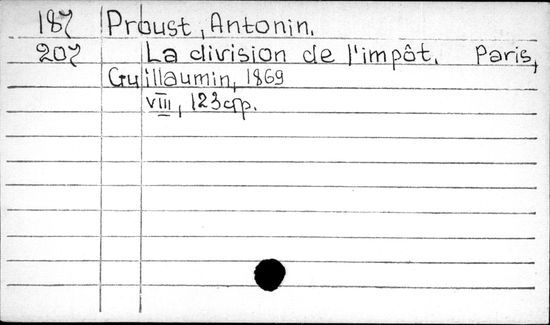 187 Proust, Antonin.
207 La division de l'impôt. Paris,
Guillaumin, 1869
VIII, 123 pp.